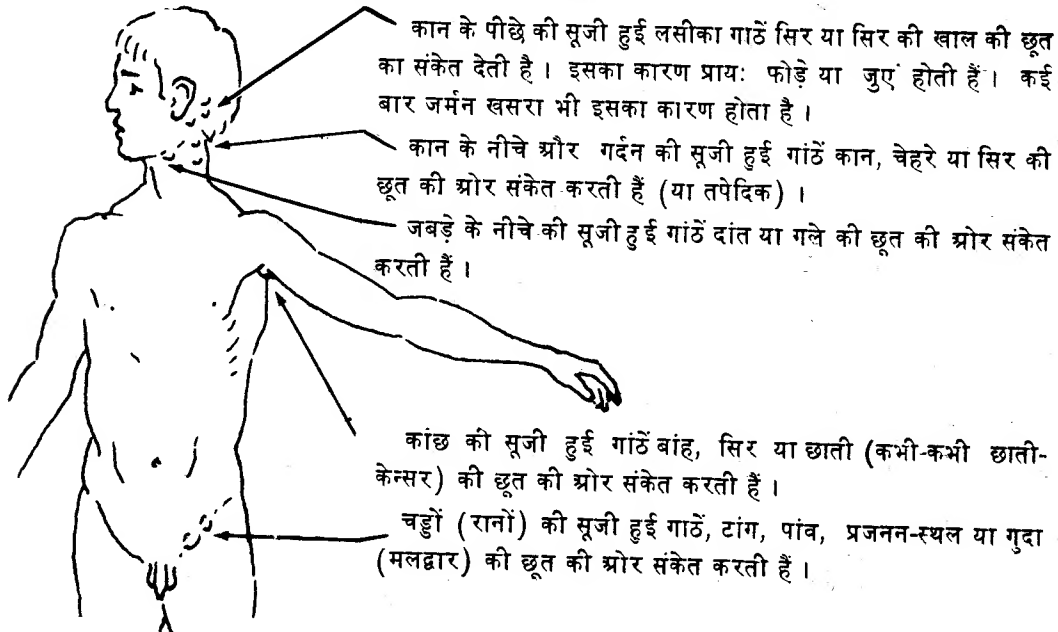 कान के पीछे की सूजी हुई लसीका गाठें सिर या सिर की खाल की छूत
का संकेत देती है । इसका कारण प्रायः फोड़े या जुएं होती हैं । कई
बार जर्मन खसरा भी इसका कारण होता है ।
कान के नीचे और गर्दन की सूजी हुई गांठें कान, चेहरे या सिर की
छूत की ओर संकेत करती हैं (या तपेदिक) ।
जबड़े के नीचे की सूजी हुई गांठें दांत या गले की छूत की ओर संकेत
करती हैं ।
कांछ की सूजी हुई गांठें बांह, सिर या छाती (कभी-कभी छाती-
केन्सर) की छूत की ओर संकेत करती हैं ।
चड्डों (रानों) की सूजी हुई गाठें, टांग, पांव, प्रजनन-स्थल या गुदा
(मलद्वार) की छूत की ओर संकेत करती हैं ।